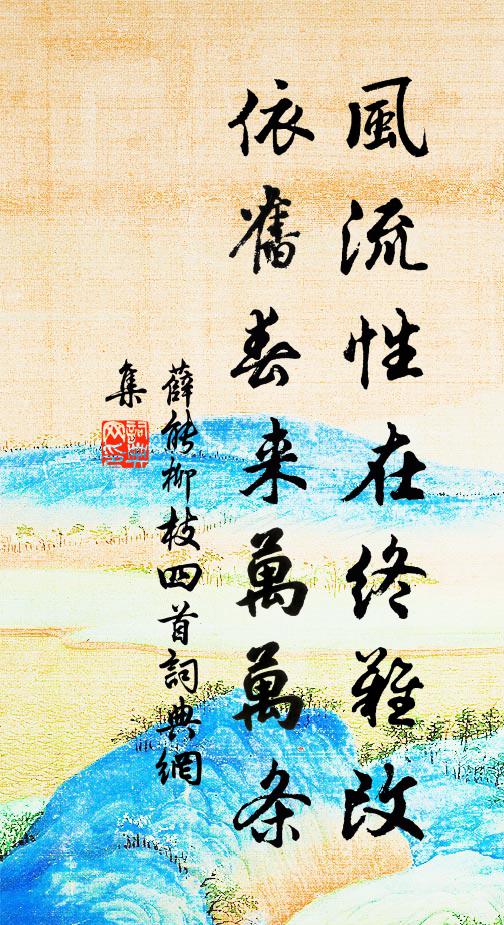 風流性在終難改
依舊春来萬萬条
薛能柳枝四首詞典網
集